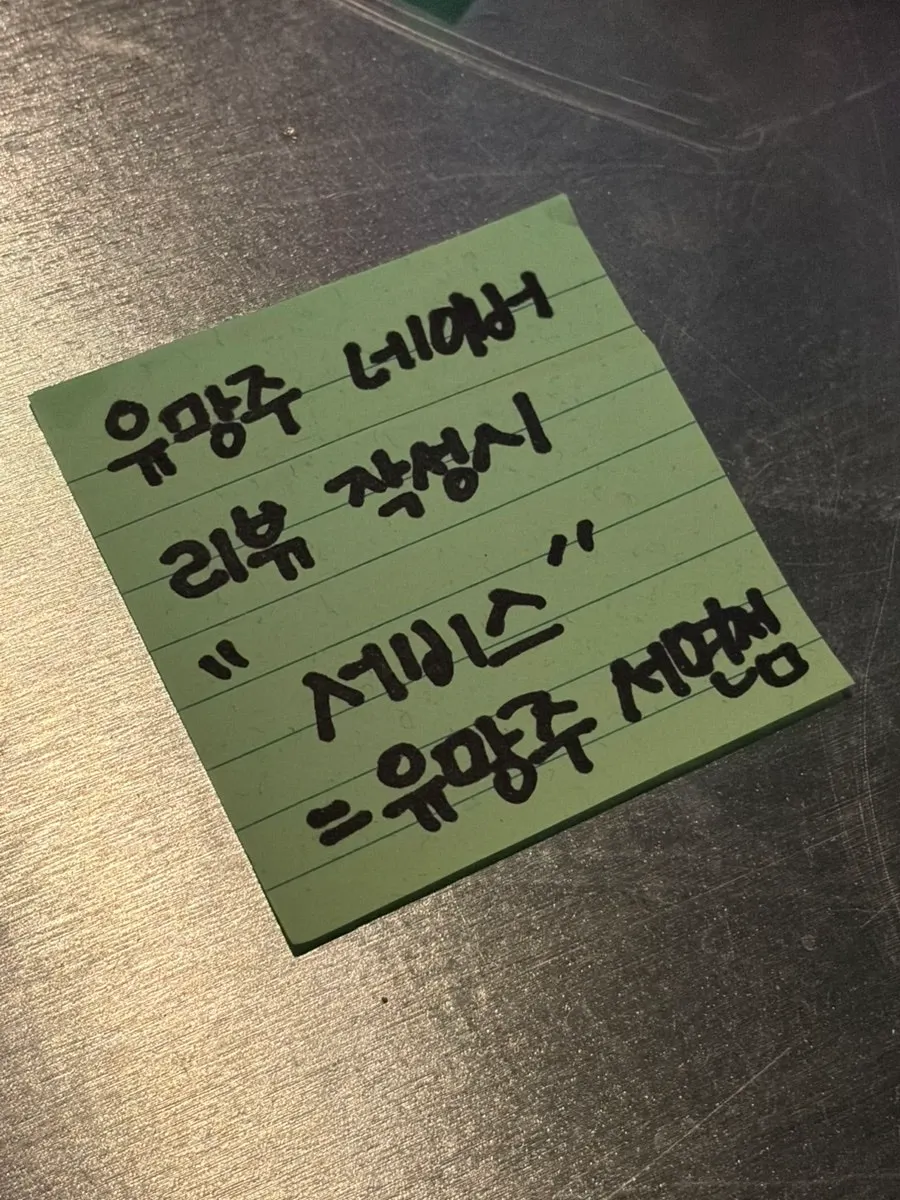 유망주 네이버
리뷰 작성시
" 서비스 "
=유망주 서면점